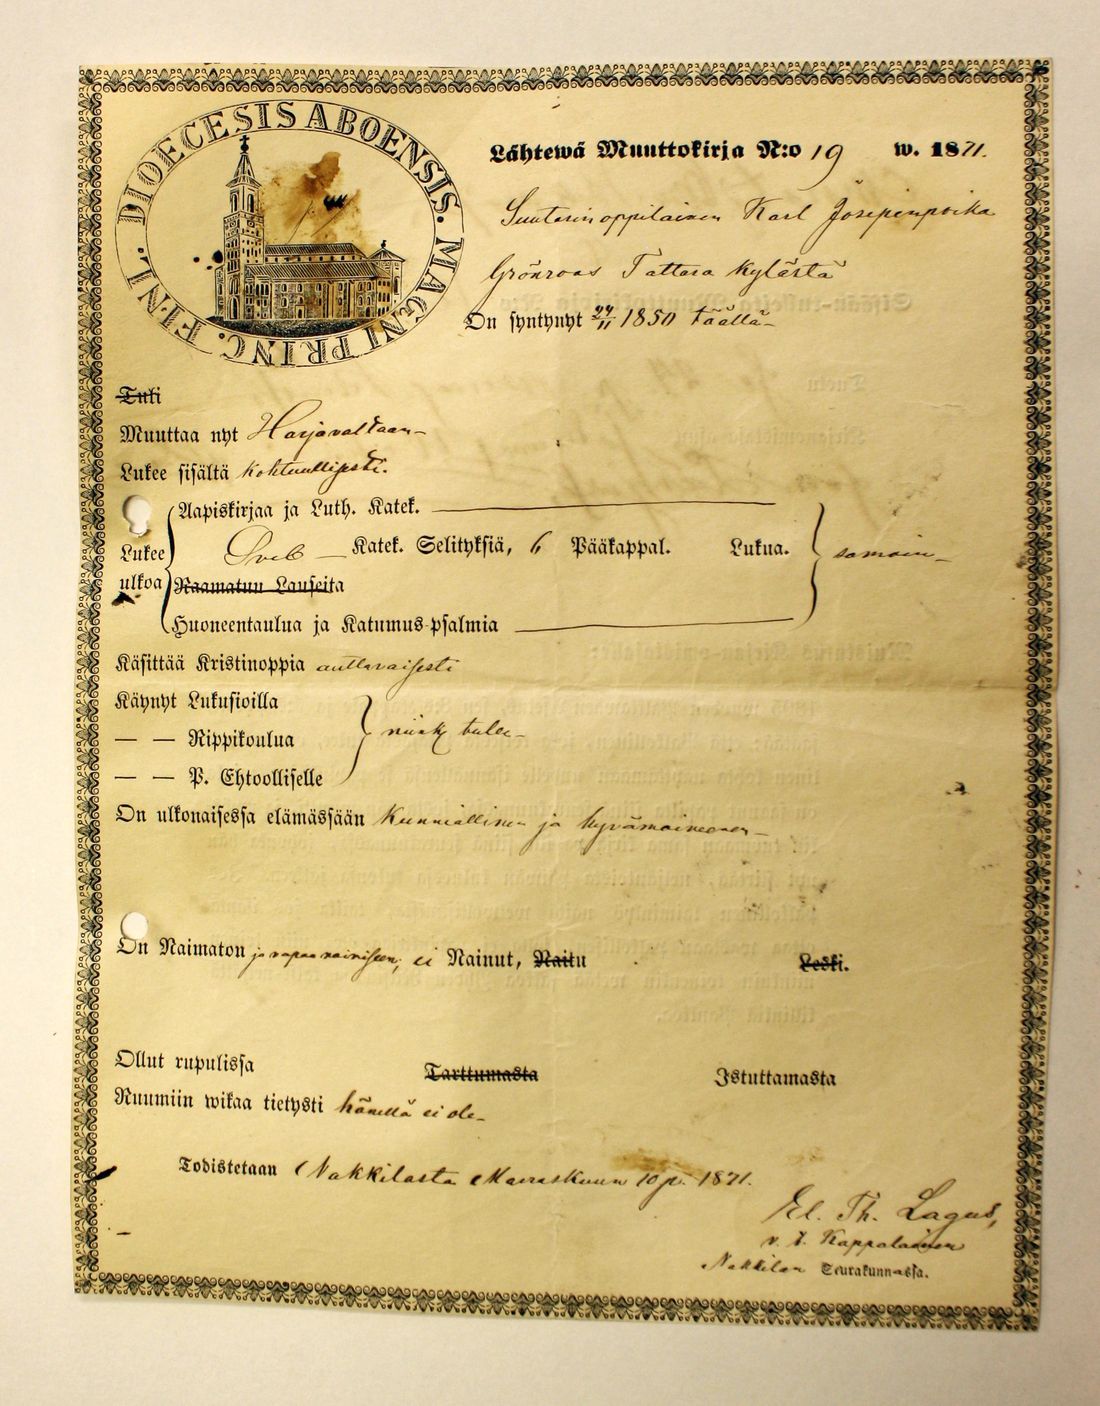 DIOECESIS ABOENSIS. MAGNI PRINC. FINL.
Lähtewä Muuttokirja N:o 19 w. 1871.
Suutarinoppilainen Karl Josepinpoika
Grönroos Tattara kylästä
On syntynyt 24/11 1850 täällä
Tuli
Muuttaa nyt Harjavaltaan
Lukee sisältä kohtuullisesti.
Aapiskirjaa ja Luth. Katek.
Lukee ulkoa Sveb Katek. Selityksiä, 6 Pääkappal. Lukua. samoin
Raamatun Lauseita
Huoneentaulua ja Katumus-psalmia
Käsittää Kristinoppia auttavaisesti
Käynyt Lukusioilla
— — Rippikoulua
— — P. Ehtoolliselle
On ulkonaisessa elämässään kunniallinen ja hyvämaineenen
On Naimaton ja vapaa naimiseen, ei Nainut, Naitu Leski.
Ollut rupulissa Tarttumasta Istuttamasta
Ruumiin wikaa tietysti hänellä ei ole
Todistetaan Nakkilasta Marraskuun 10 p. 1871.
El. Th. Lagus,
v. t. Kappalainen
Nakkilan Seurakunnassa.